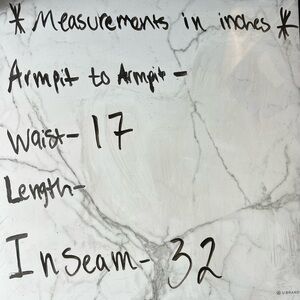 * Measurements in inches *
Armpit to Armpit -
Waist- 17
Length-
Inseam- 32
U BRANDS